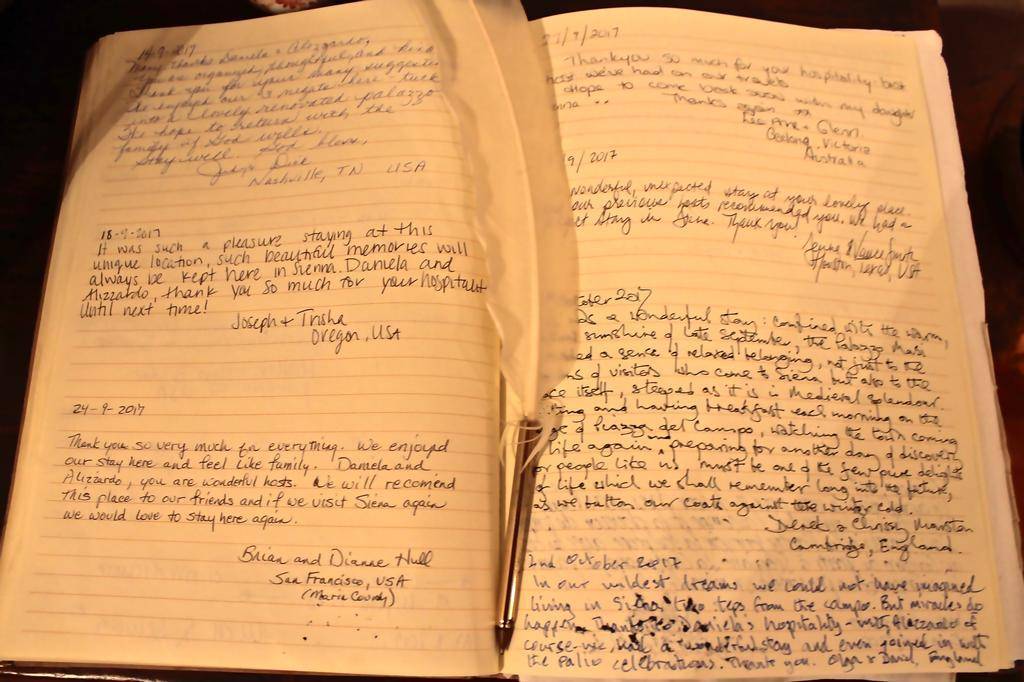 14-9-2017
Many thanks Daniela & Alizzardo,
You are organized, thoughtful, and kind
Thank you for your many suggestions
We enjoyed our 3 nights here tuck
into a lovely renovated palazzo
We hope to return with the
family if God wills.
Stay well. God bless,
Dick
Nashville, TN USA
18-9-2017
It was such a pleasure staying at this
unique location, such beautiful memories will
always be kept here in Sienna. Daniela and
Alizzardo, thank you so much for your hospitalit
Until next time!
Joseph + Trisha
Oregon, USA
24-9-2017
Thank you so very much for everything. We enjoyed
our stay here and feel like family. Daniela and
Alizzardo, you are wonderful hosts. We will recomend
this place to our friends and if we visit Siena again
we would love to stay here again.
Brian and Dianne Hull
San Francisco, USA
(Marin County)
27/9/2017
Thankyou so much for your hospitality. best
we've had on our travels
Hope to come back soon within my daughter
Thanks again
Lee Anne + Glenn
Geelong, Victoria
Australia
9/2017
wonderful, unexpected stay at your lovely place.
our previous hosts recommended you. We had a
stay in Siena. Thank you!
& Vance Smith
Houston, Texas, USA
tober 2017
as a wonderful stay: combined with the warm,
sunshine of late September, the Palazzo Masi
ed a sense of relaxed belonging, not just to the
ns of visitors who come to Siena but also to the
ace itself, steeped as it is in Medieval splendour.
ting and having breakfast each morning on the
ge of Piazza del Campo, watching the town coming
life again, preparing for another day of discovery
or people like us, must be one of the few pure delights
of life which we shall remember long into the future,
as we button our coats against the winter cold.
Derek & Chrissy Marston
Cambridge, England.
2nd October 2017
In our wildest dreams we could not have imagined
living in Siena, two steps from the campo. But miracles do
happen. Thanks to Daniela's hospitality - with Alizzardo of
course - we had a wonderful stay and even joined in with
the Palio celebrations. Thank you. Olga & David, England